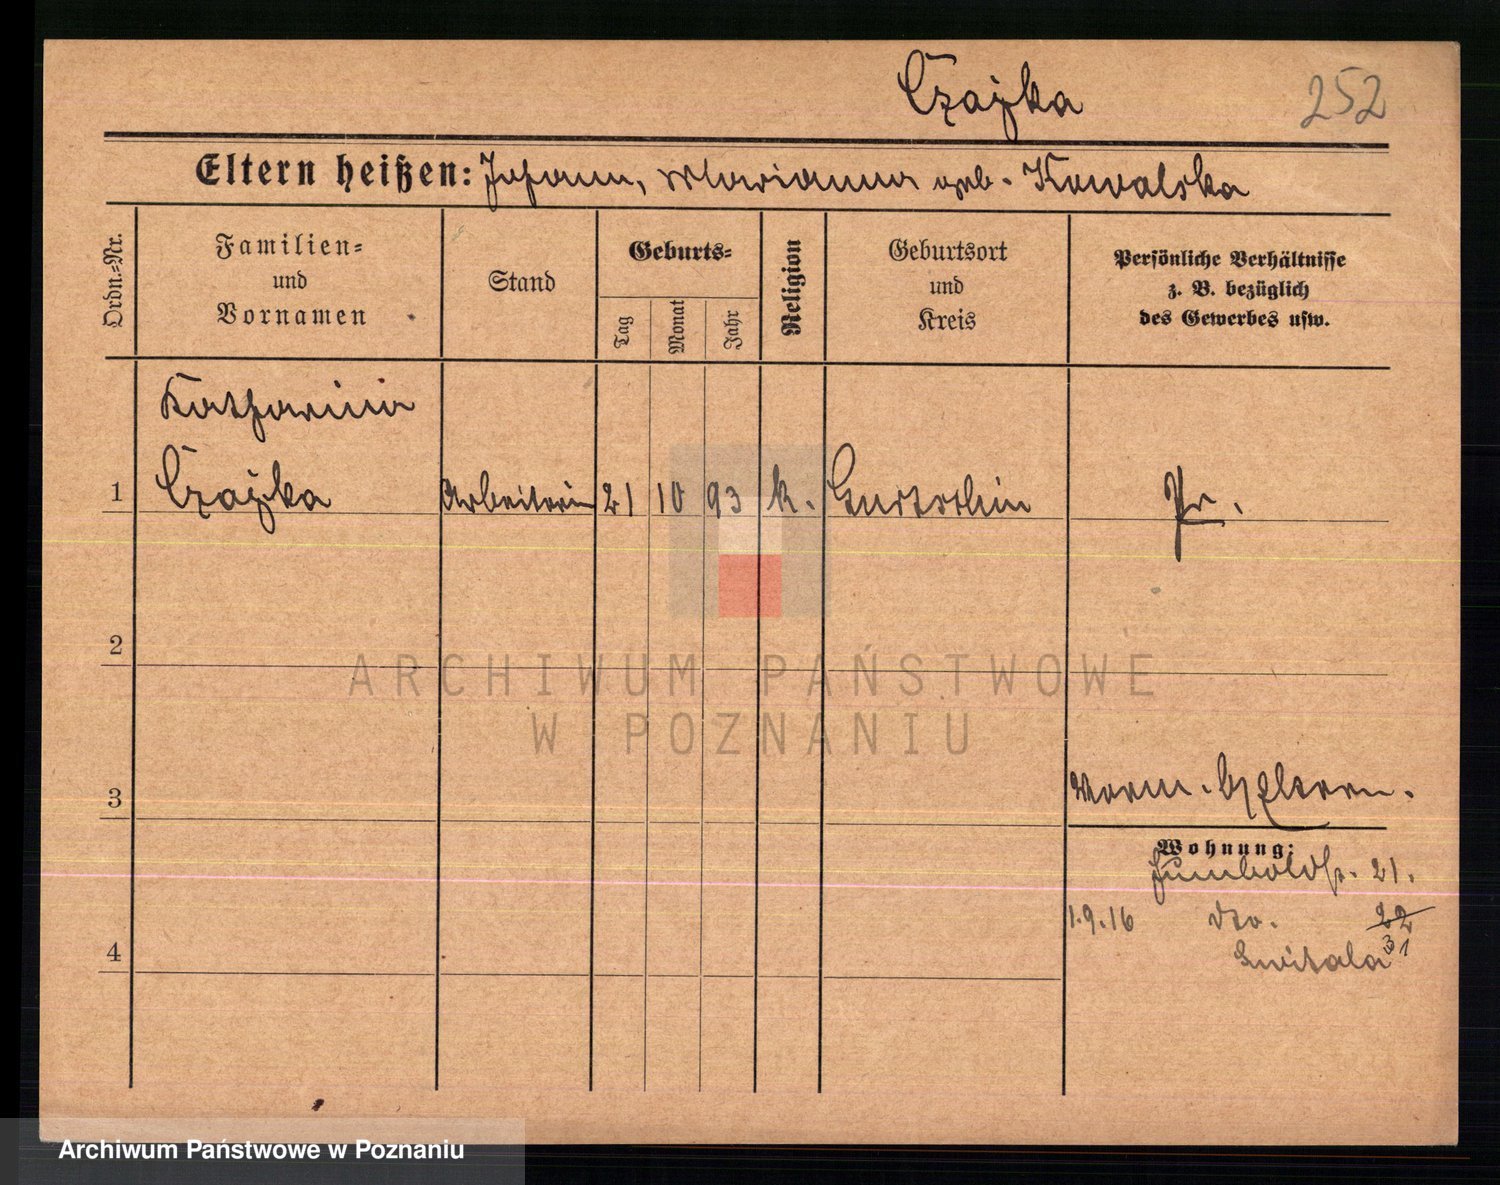 Czajka
252
Eltern heißen: Johann, Marianna geb. Kowalska
Ordn.=Nr.
Familien=
und
Vornamen
Stand
Geburts=
Tag
Monat
Jahr
Religion
Geburtsort
und
Kreis
Persönliche Verhältnisse
z. B. bezüglich
des Gewerbes usw.
Katharina
1 Czajka Arbeiterin 21 10 93 k. Gurtschin Pr.
2
ARCHIWUM PAŃSTWOWE
W POZNANIU
3
Wohnung:
Humboldtstr. 21.
1.9.16 dto. 22
31
Switala
4
Archiwum Państwowe w Poznaniu